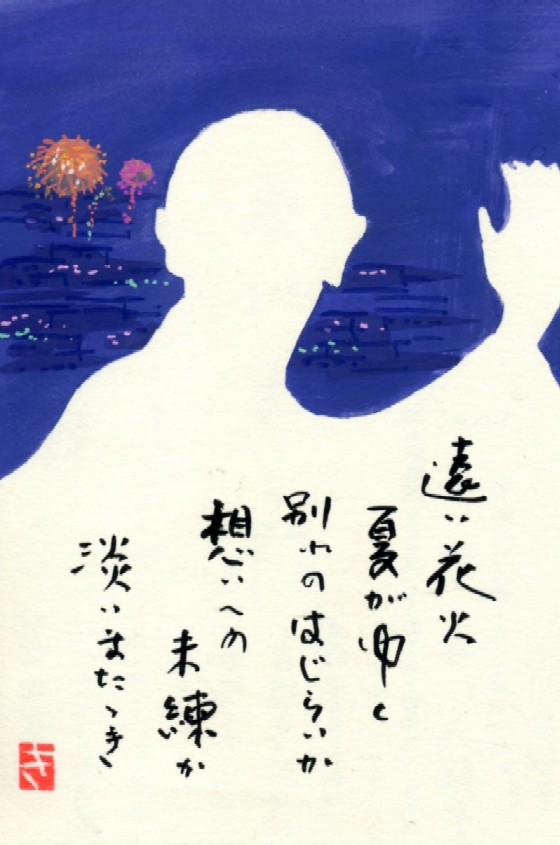 遠い花火
夏がゆく
別れのはじらいか
想いへの
未練か
淡いまたゝき